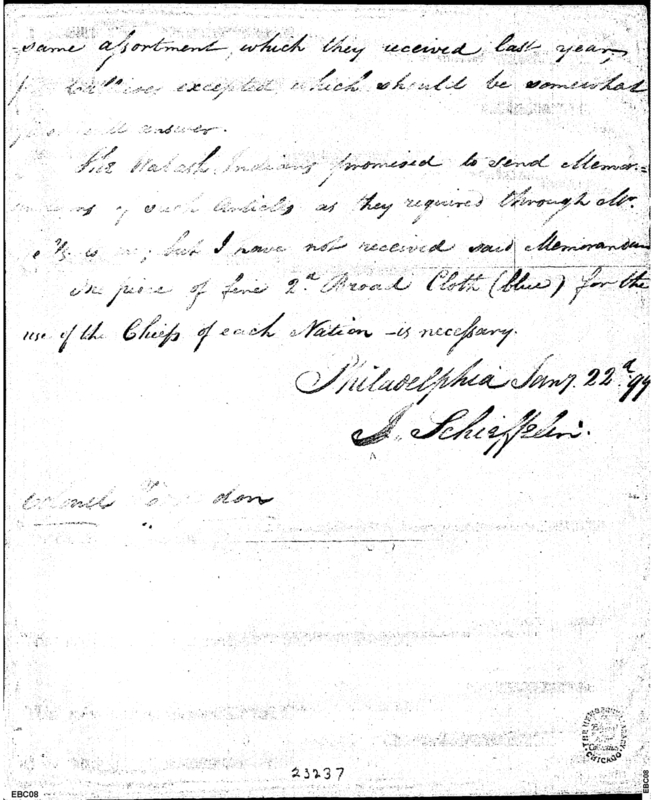 same assortment, which they received last year,
excepted, which should be somewhat
answer.
The Wabash Indians promised to send Memor=
of such Articles as they required through Mr.
but I have not received said Memorandum
piece of fine 2d. Broad Cloth (blue) for the
use of the Chiefs of each Nation - is necessary.
Philadelphia Jany. 22d. 99
J. Schieffelin.
don
23237
CHICAGO
EBC08
EBC08